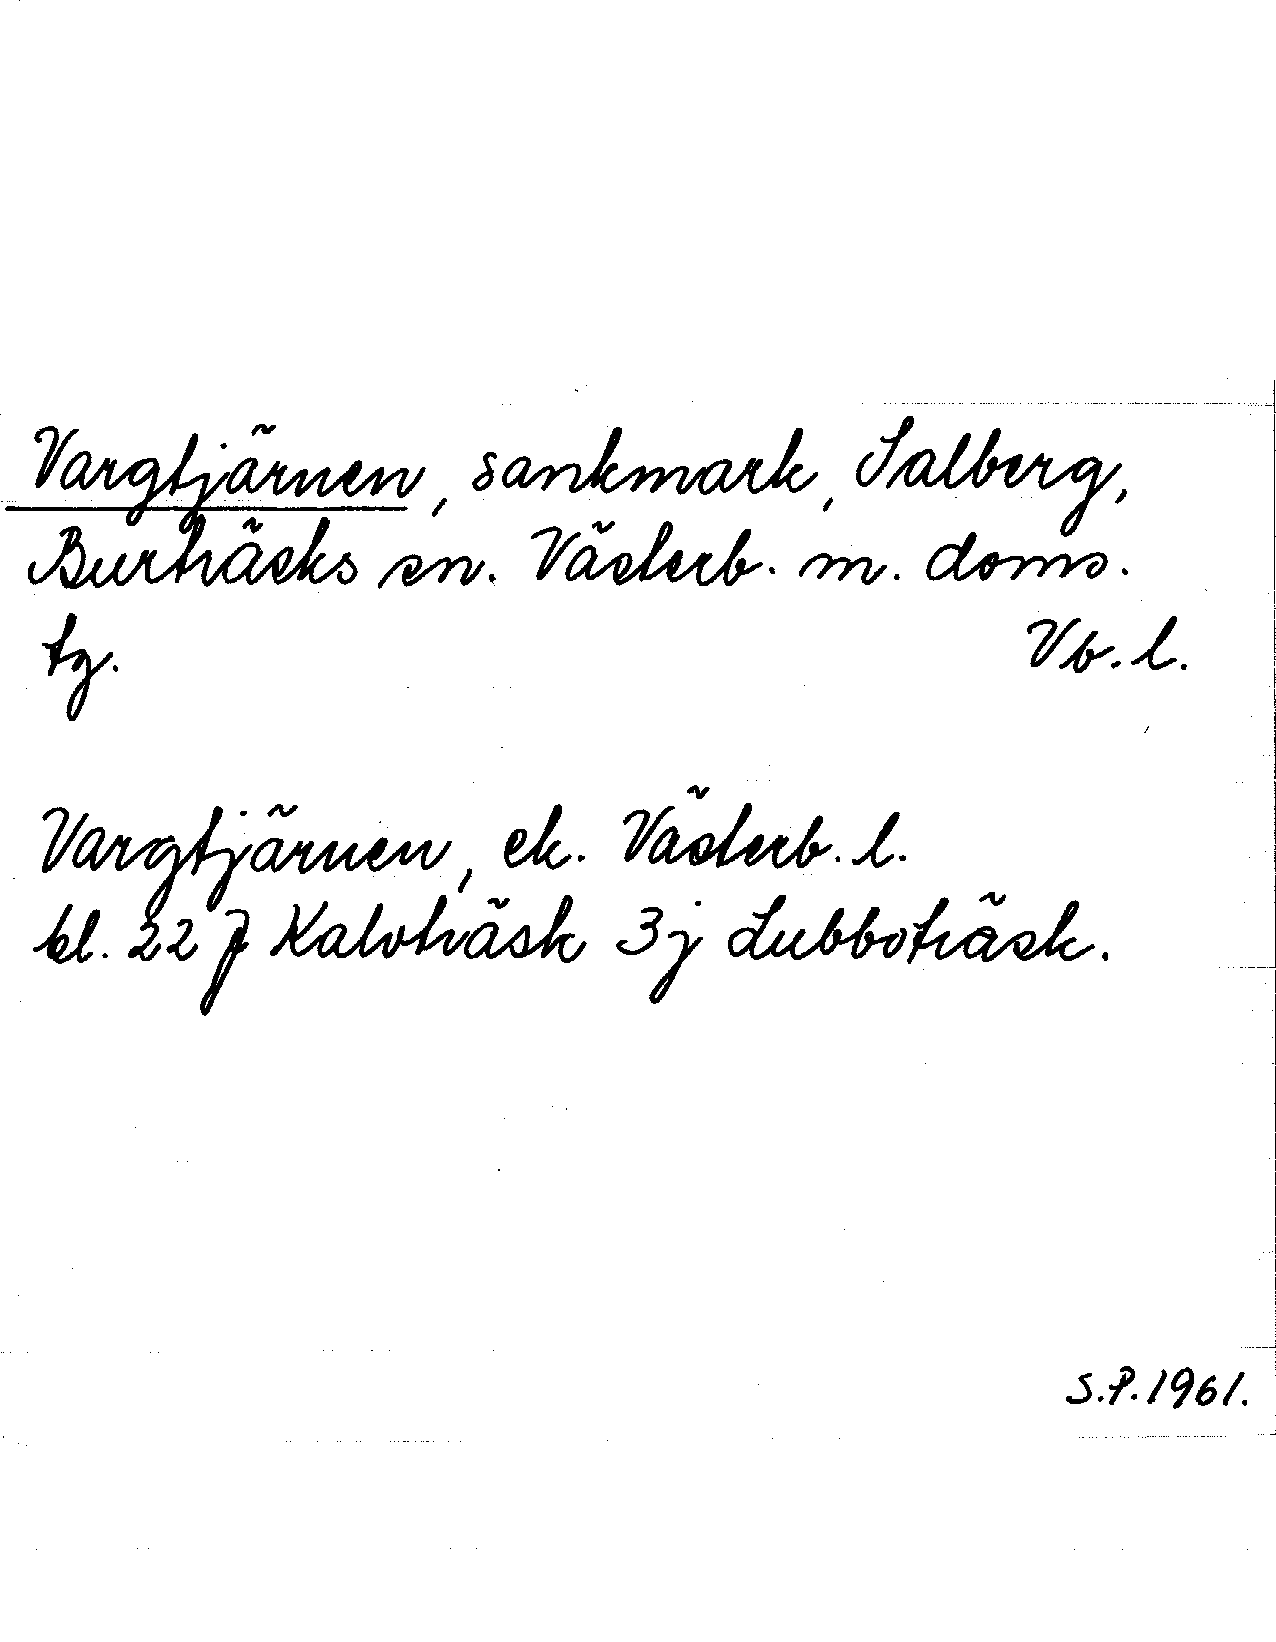 Vargtjärnen, sankmark, Salberg,
Burträsks sn. Västerb. m. doms.
tg. Vb. l.
Vargtjärnen, ek. Västerb. l.
bl. 22 J Kalvträsk 3j Lubboträsk.
S.P. 1961.